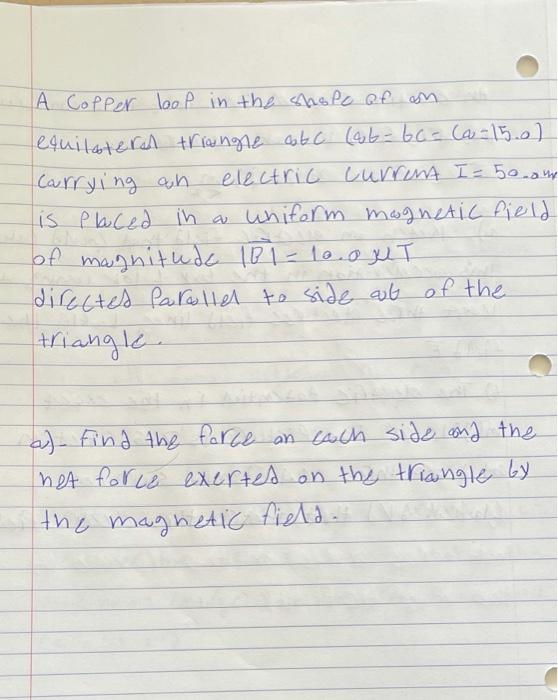 A Copper loop in the shape of an
equilateral triangle abc (ab = bc = ca = 15.0)
carrying an electric current I = 50.0
is placed in a uniform magnetic field
of magnitude |B⃗| = 10.0 μT
directed parallel to side ab of the
triangle.
a)- Find the force on each side and the
net force exerted on the triangle by
the magnetic field.